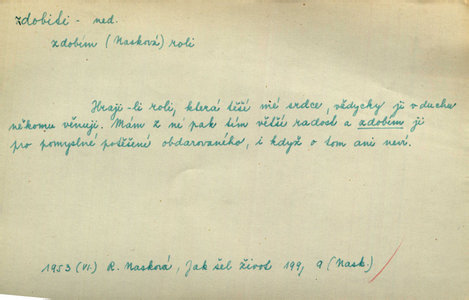 zdobiti - ned.
zdobím (Nasková) roli
Hraji-li roli, která těší mé srdce, vždycky ji v duchu
někomu věnuji. Mám z né pak tím větší radost a zdobím ji
pro pomyslné potěšení obdarovaného, i když o tom ani neví.
1953 (VI.) R. Nasková, Jak šel život 199, 9 (Nask.)